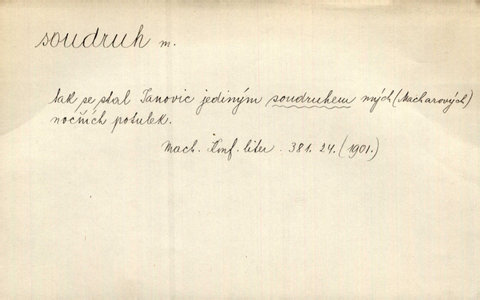 soudruh m.
tak se stal Janovic jediným soudruhem mých (Macharových)
nočních potulek.
Mach. Konf. liter. 381. 24. (1901.)